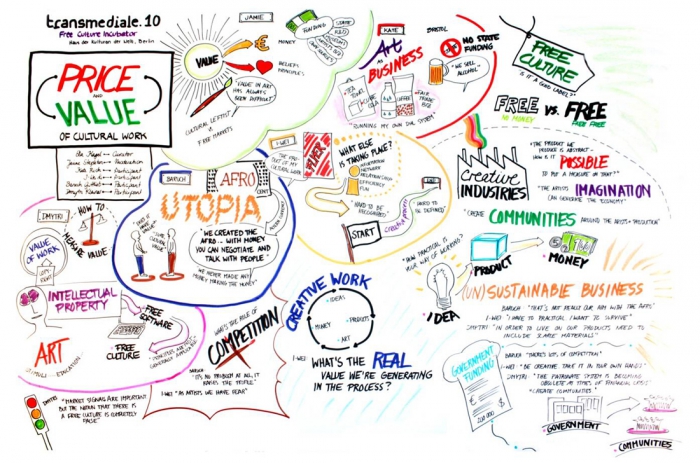 transmediale.10
Free Culture Incubator
Haus der Kulturen der Welt, Berlin
PRICE
AND
VALUE
OF CULTURAL WORK
JAMIE
VALUE
MONEY
FUNDING
BELIEFS
PRINCIPLES
"VALUE" IN ART
HAS ALWAYS
BEEN DIFFICULT"
CULTURAL LEFTIST
VS
FREE MARKETS
KATE
BRISTOL
Art
AS
BUSINESS
NO STATE
FUNDING
"WE SELL
ALCOHOL"
COFFEE
FAIR
TRADE
"RUNNING MY OWN DIY SYSTEM"
FREE
CULTURE
IS IT A GOOD LABEL?
FREE VS. FREE
NO MONEY
"THE PRODUCT WE
PRODUCE IS ABSTRACT -
HOW IS IT POSSIBLE
TO PUT A MEASURE ON THAT?"
creative
INDUSTRIES
"THE ARTISTS IMAGINATION
CAN GENERATE THE ECONOMY"
"CREATE COMMUNITIES AROUND THE ARTISTS PRODUCTION"
BARUCH
AFRO
UTOPIA
"WE CREATED THE
AFRO - WITH MONEY
YOU CAN NEGOTIATE AND
TALK WITH PEOPLE"
"WE NEVER MADE ANY
MONEY MAKING THE MONEY"
I-WEI
FLYER
WHAT ELSE
IS TAKING PLACE?
EFFICIENCY
FUN
HARD TO BE
RECOGNISED
HARD TO
BE DEFINED
START
DMYTRI
HOW TO
MEASURE VALUE
VALUE
OF WORK
INTELLECTUAL
PROPERTY
FREE
SOFTWARE
FREE
CULTURE
ART
STIMULI - EDUCATION
DMYTRI
"MARKET SIGNALS ARE IMPORTANT
BUT THE NOTION THAT THERE IS
A FREE CULTURE IS COMPLETELY
FALSE"
WHAT'S THE ROLE OF
COMPETITION
BARUCH
"IT'S NO PROBLEM AT ALL, IT
RAISES THE PEOPLE"
I-WEI "AS ARTISTS WE HAVE FEAR"
CREATIVE WORK
IDEAS
MONEY
PRODUCTS
ART
I-WEI
WHAT'S THE REAL
VALUE WE'RE GENERATING
IN THE PROCESS?
"HOW PRACTICAL IS
YOUR WAY OF WORKING?
IDEA
PRODUCT
MONEY
(UN)SUSTAINABLE BUSINESS
BARUCH "THAT'S NOT REALLY OUR AIM WITH THE AFRO"
I-WEI "I HAVE TO PRACTICAL, I WANT TO SURVIVE"
DMYTRI "IN ORDER TO LIVE ON OUR PRODUCTS NEED TO
INCLUDE SCARCE MATERIALS"
GOVERNMENT
FUNDING
BARUCH "THERE'S LOTS OF COMPETITION"
I-WEI "BE CREATIVE TAKE IT IN YOUR OWN HANDS"
DMYTRI "THE PATRONAGE SYSTEM IS BECOMING
OBSOLETE AT TIMES OF FINANCIAL CRISIS"
"CREATE COMMUNITIES"
GOVERNMENT
COMMUNITIES